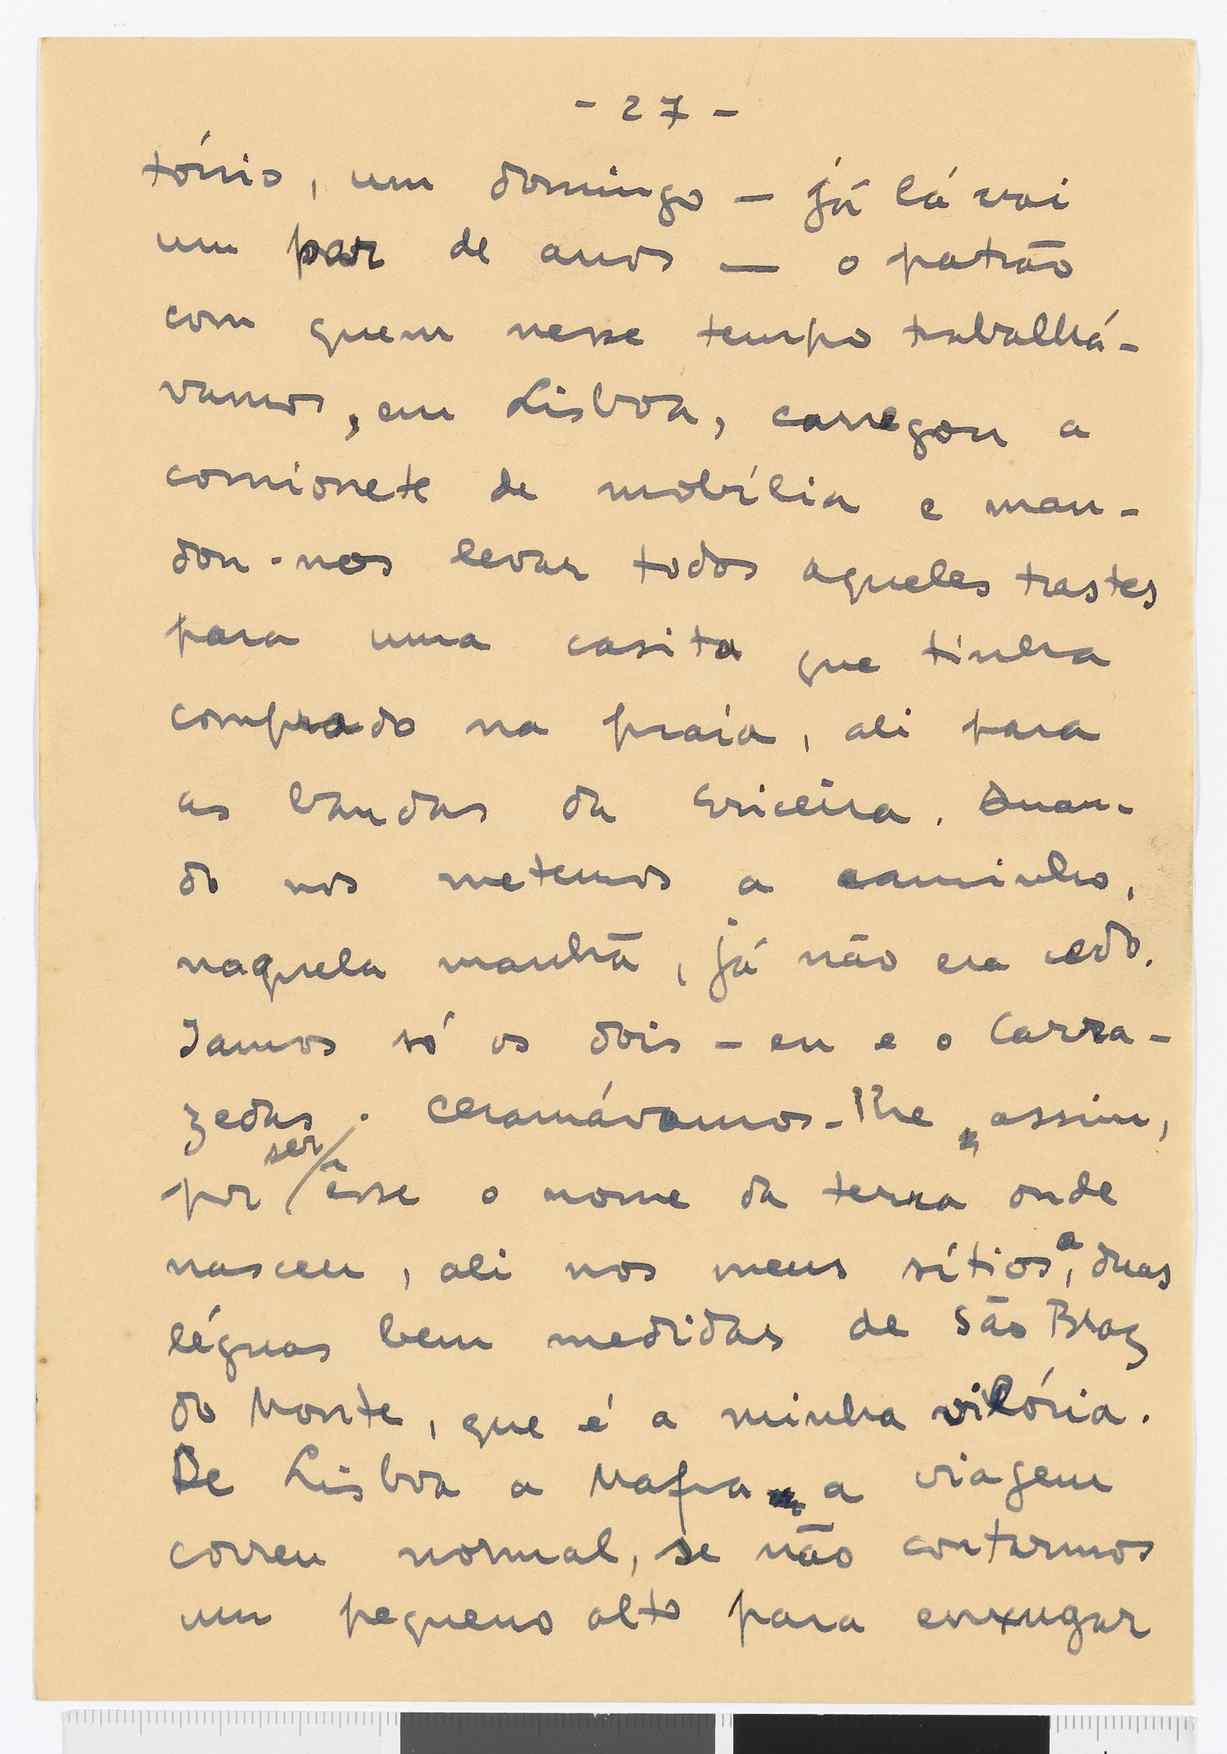 - 27 -
tónio, um domingo — já lá vai
um par de anos — o patrão
com quem nesse tempo trabalhá-
vamos, em Lisboa, carregou a
comionete de mobília e man-
dou-nos levar todos aqueles trastes
para uma casita que tinha
comprado na praia, ali para
as bandas da Ericeira. Quan-
do nos metemos a caminho,
naquela manhã, já não era cedo.
Iamos só os dois - eu e o Carra-
zedas. Ceramávamos-lhe assim,
ser
por êsse o nome da terra onde
nasceu, ali nos meus sítios, a duas
léguas bem medidas de São Braz
do Monte, que é a minha vilória.
De Lisboa a Mafra a viagem
correu normal, se não contarmos
um pequeno alto para enxugar